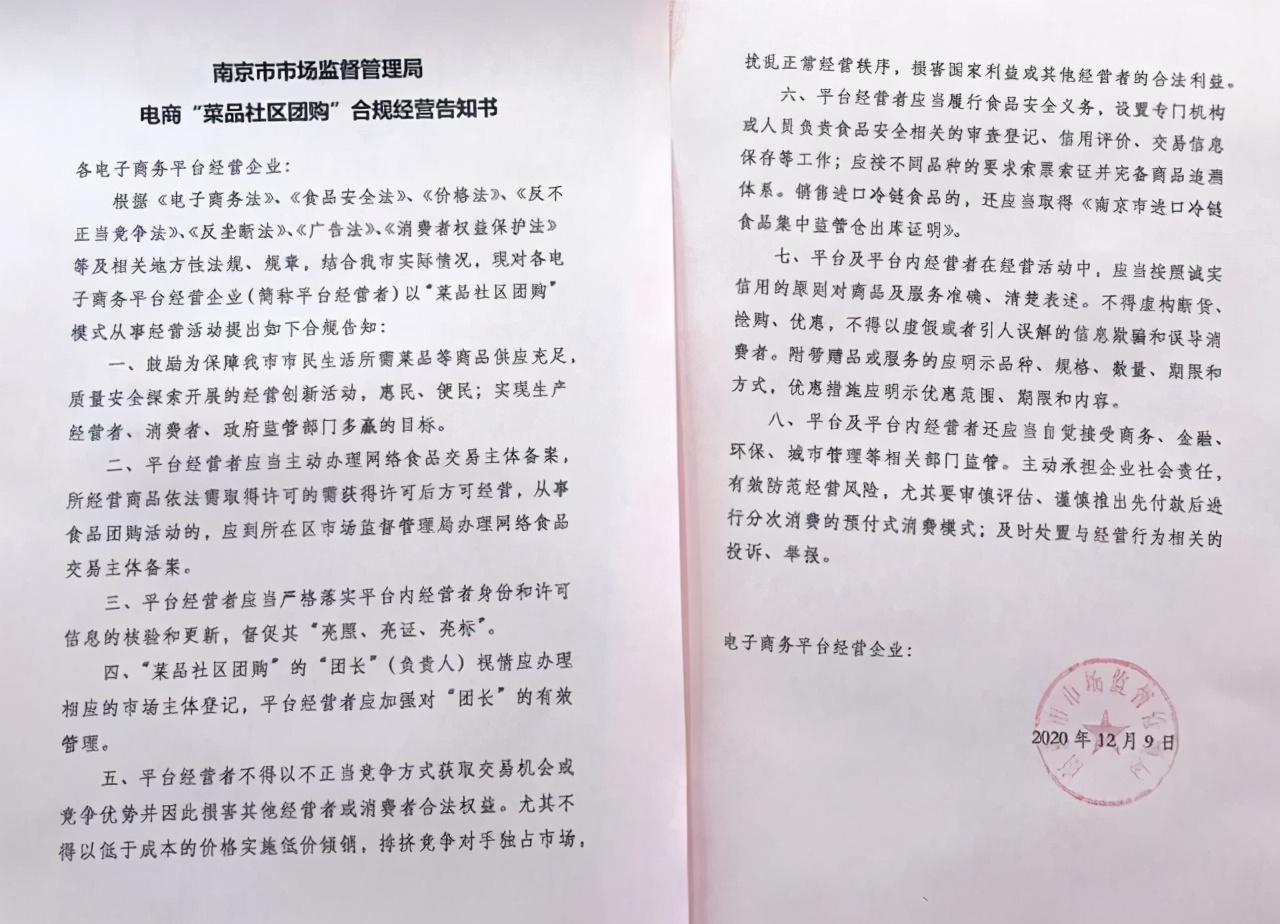 南京市市场监督管理局
电商“菜品社区团购”合规经营告知书
各电子商务平台经营企业：
根据《电子商务法》、《食品安全法》、《价格法》、《反不
正当竞争法》、《反垄断法》、《广告法》、《消费者权益保护法》
等及相关地方性法规、规章，结合我市实际情况，现对各电
子商务平台经营企业(简称平台经营者)以“菜品社区团购”
模式从事经营活动提出如下合规告知：
一、鼓励为保障我市市民生活所需菜品等商品供应充足，
质量安全探索开展的经营创新活动，惠民、便民；实现生产
经营者、消费者、政府监管部门多赢的目标。
二、平台经营者应当主动办理网络食品交易主体备案，
所经营商品依法需取得许可的需获得许可后方可经营，从事
食品团购活动的，应到所在区市场监督管理局办理网络食品
交易主体备案。
三、平台经营者应当严格落实平台内经营者身份和许可
信息的核验和更新，督促其“亮照、亮证、亮标”。
四、“菜品社区团购”的“团长”(负责人）视情应办理
相应的市场主体登记，平台经营者应加强对“团长”的有效
管理。
五、平台经营者不得以不正当竞争方式获取交易机会或
竞争优势并因此损害其他经营者或消费者合法权益。尤其不
得以低于成本的价格实施低价倾销，排挤竞争对手独占市场，
扰乱正常经营秩序，损害国家利益或其他经营者的合法利益。
六、平台经营者应当履行食品安全义务，设置专门机构
或人员负责食品安全相关的审查登记、信用评价、交易信息
保存等工作；应按不同品种的要求索票索证并完备商品追溯
体系。销售进口冷链食品的，还应当取得《南京市进口冷链
食品集中监管仓出库证明》。
七、平台及平台内经营者在经营活动中，应当按照诚实
信用的原则对商品及服务准确、清楚表述。不得虚构断货、
抢购、优惠，不得以虚假或者引人误解的信息欺骗和误导消
费者。附赠赠品或服务的应明示品种、规格、数量、期限和
方式，优惠措施应明示优惠范围、期限和内容。
八、平台及平台内经营者还应当自觉接受商务、金融、
环保、城市管理等相关部门监管。主动承担企业社会责任，
有效防范经营风险，尤其要审慎评估、谨慎推出先付款后进
行分次消费的预付式消费模式；及时处置与经营行为相关的
投诉、举报。
电子商务平台经营企业：
南京市市场监督管理局
2020 年 12 月 9 日